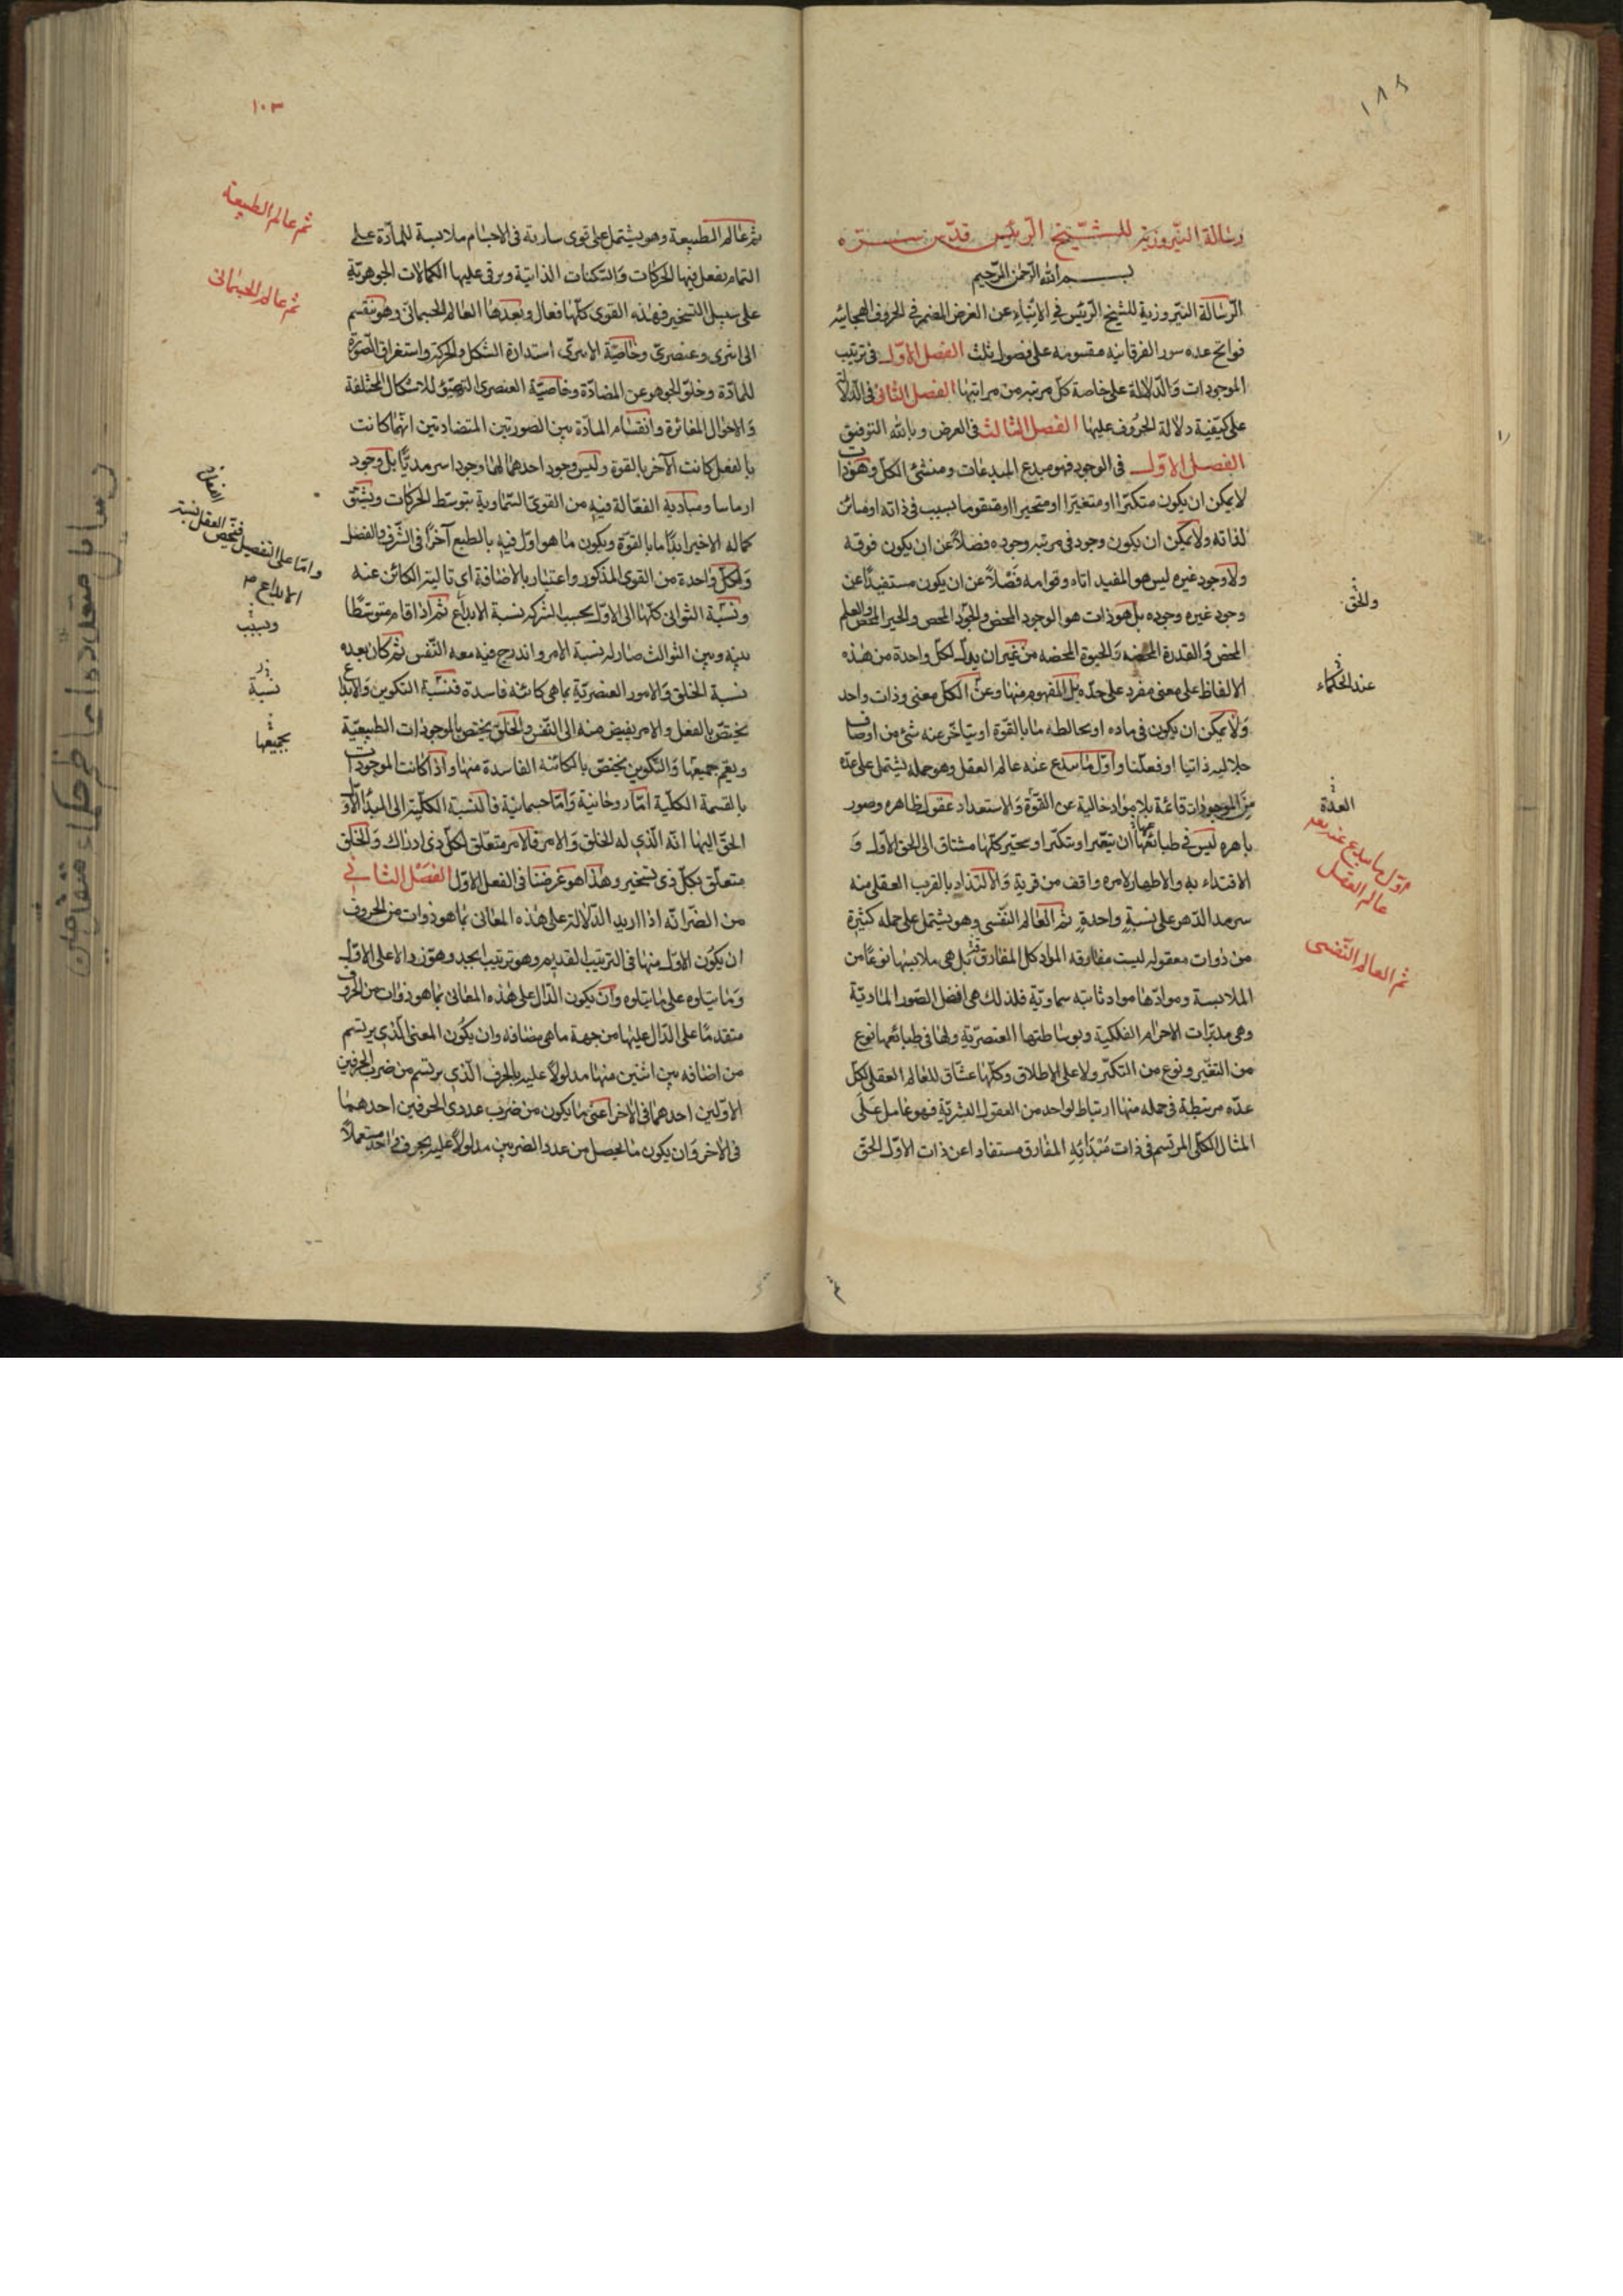 ١٨٢
رسالة النيروزية للشيخ الرئيس قدس سره
بسم الله الرحمن الرحيم
الرسالة النيروزية للشيخ الرئيس في الانباء عن الغرض المضمر في الحروف الهجائيه
فواتح عده سور الفرقانيه مقسومه على فصول ثلث الفصل الاول في ترتيب
الموجودات والدلالة على خاصة كل مرتبه من مراتبها الفصل الثاني في الدلالة
على كيفية دلالة الحروف عليها الفصل الثالث في الغرض وبالله التوفيق
الفصل الاول في الوجود فهو مبدع المبدعات ومنشئ الكل وهو ذات
لا يمكن ان يكون متكثرا او متغيرا او متحيرا او متقوما بسبب في ذاته او مباين
لذاته ولا يمكن ان يكون وجود في مرتبه وجوده فضلا عن ان يكون فوقه
ولا وجود غيره ليس هو المفيد اتاه وقوامه فضلا عن ان يكون مستفيدا عن
وجود غيره وجوده بل هو ذات هو الوجود المحض والجود المحض والخير المحض والعلم
المحض والقدرة المحضه والحيوة المحضه من غير ان يدل لكل واحدة من هذه
الالفاظ على معنى مفرد على حده بل المفهوم منها وعن الكل معنى وذات واحد
ولا يمكن ان يكون في ماده او يخالطه ما بالقوة او يتاخر عنه شئ من اوصاف
جلاليه ذاتيا او فعليا واول ما يبدع عنه عالم العقل وهو جمله يشتمل على عده
من الموجودات قائمة بلا مواد خالية عن القوة والاستعداد عقول ظاهره وصور
باهره ليس في طبائعها ان تتغير او تتكثر او تتحير كلها مشتاق الى الحق الاول و
الاقتداء به والاظهار لامره واقف من قربة والالتذاذ بالقرب العقلى منه
سرمد الدهر على نسبة واحدة ثم العالم النفسى وهو يشتمل على جمله كثيرة
من ذوات معقوله ليست مفارقه المواد كل المفارقة بل هى ملابستها نوعا من
الملابسة وموادها مواد ثابته سماوية فلذلك هى افضل الصور المادية
وهى مدبرات الاجرام الفلكية وبوساطتها العنصرية ولها في طبائعها نوع
من التغير ونوع من التكثر ولا على الاطلاق وكلها عشاق للعالم العقلى لكل
عده مرتبطة في جمله منها ارتباط لواحد من العقول البشرية فهو عامل على
المثال الكلى المرتسم في ذات مبدائه المفارق مستفادا عن ذات الاول الحق
والحق
عند الحكماء
العدة
اول ما يبدع عنه عالم العقل
ثم العالم النفسى
١٠٣
ثم عالم الطبيعة وهو يشتمل على قوى سارية في الاجسام ملابسة للمادة على
التمام يفعل فيها الحركات والسكنات الذاتية ويرقى عليها الكمالات الجوهرية
على سبيل التسخير فهذه القوى كلها فعال وبعدها العالم الجسمانى وهو ينقسم
الى اثيرى وعنصرى وخاصية الاثيرى استدارة الشكل والحركة واستغراق الصورة
للمادة وخلو الجوهر عن المضادة وخاصية العنصرى التهيؤ للاشكال المختلفة
والاحوال المغائرة وانقسام المادة بين الصورتين المتضادتين ايتهما كانت
بالفعل كانت الآخر بالقوة وليس وجود احدهما لها وجودا سرمديا بل وجود
ازمانيا ومباديه الفعالة فيه من القوى السماوية بتوسط الحركات ويسبق
كماله الاخير ابدا ما بالقوة ويكون ما هو اول فيه بالطبع آخرا في الشرف والفضل
ولكل واحدة من القوى المذكور واعتبار بالاضافة اى تاليته الكائن عنه
ونسبة الثوانى كلها الى الاول بحسب الشركه نسبة الابداع ثم اذا قام متوسطا
بينه وبين الثوالث صار له نسبة الامر واندرج فيه معه النفس ثم كان بعده
نسبة الخلق والامور العنصرية بما هى كائنه فاسدة فنسبة التكوين والابداع
يختص بالفعل والامر يفيض منه الى النفس والخلق يختص بالموجودات الطبيعية
ويعم جميعها والتكوين يختص بالكائنه الفاسدة منها واذا كانت الموجودات
بالقسمة الكلية اما روحانية واما جسمانية فالنسبة الكلية الى المبدا الاول
الحق اليها انه الذي له الخلق والامر فالامر متعلق لكل ذى ادراك والخلق
متعلق بكل ذى تسخير وهذا هو غرضنا في الفعل الاول الفصل الثانى
من الضرانه اذا اريد الدلالة على هذه المعانى بما هو ذوات من الحروف
ان يكون الاول منها في الترتيب القديم وهو ترتيب ابجد وهوز دالا على الاول
وما يتلوه على ما يتلوه وان يكون الدال على هذه المعانى بما هو ذوات من الحروف
متقدما على الدال عليها من جهة ما هى مضافه وان يكون المعنى الذي يرتسم
من اضافه بين اثنين منها مدلولا عليه بالحرف الذي يرتسم من ضرب الحرفين
الاولين احدهما في الاخر اعنى ما يكون من ضرب عددى الحرفين احدهما
فى الاخر وان يكون ما يحصل من عدد الضربين مدلولا عليه بحرف واحد مستعملا
ثم عالم الطبيعة
ثم عالم الجسمانى
واما على التفصيل فيخص العقل بنسبة
الابداع م
وبسبب
نسبة
بجميعها
رسايل متعدد از حكماء متقدمين